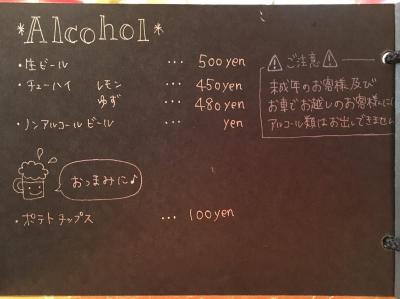 *Alcohol*
・生ビール … 500yen
・チューハイ レモン … 450yen
ゆず … 480yen
・ノンアルコールビール … yen
⚠ ご注意 ⚠
未成年のお客様及び
お車でお越しのお客様に
アルコール類はお出しできません
おつまみに♪
・ポテトチップス … 100yen